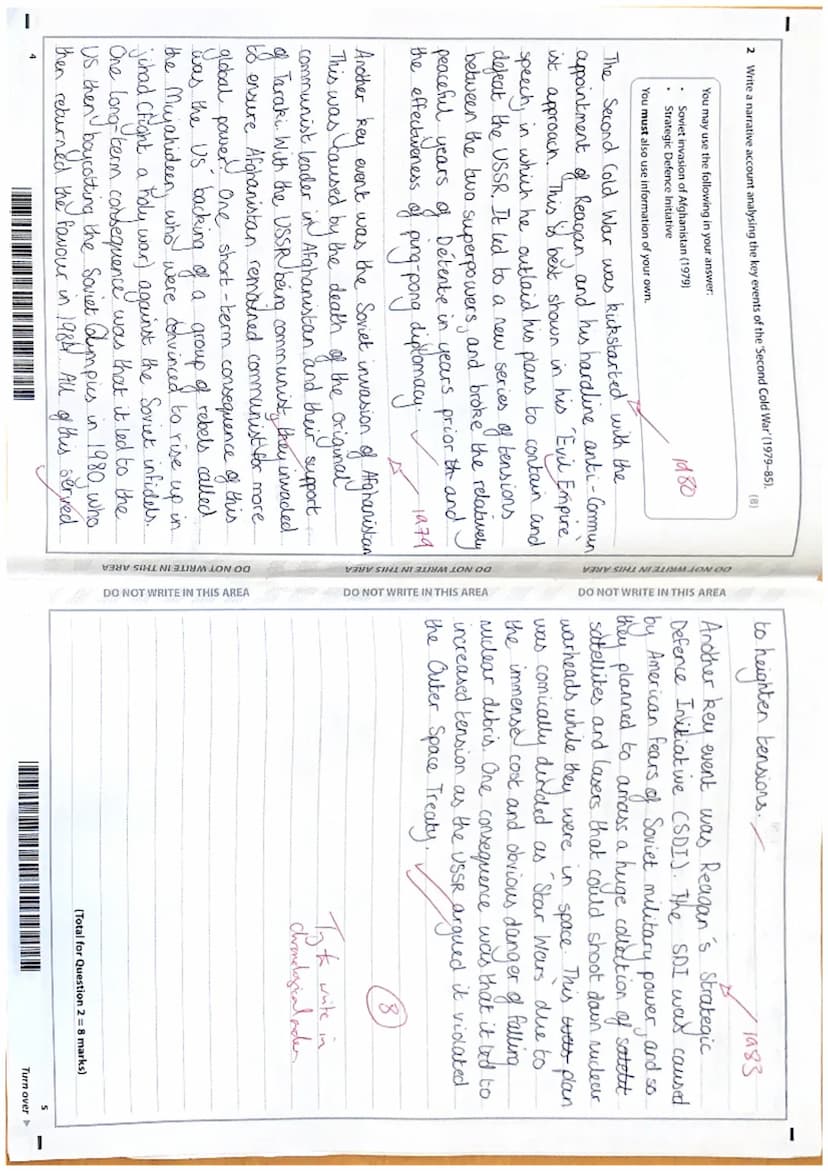 2 Write a narrative account analysing the key events of the 'Second Cold War' (1979–85).
(8)
You may use the following in your answer:
• Soviet invasion of Afghanistan (1979)
• Strategic Defence Initiative
You must also use information of your own.
1980
The Second Cold War was kickstarted with the
appointment of Reagan and his hardline anti-Commun
ist approach. This is best shown in his 'Evil Empire'
speech in which he outlaid his plans to contain and
defeat the USSR. It led to a new series of tensions
between the two superpowers, and broke the relatively
peaceful years of Détente in years prior th and
the effectiveness of ping-pong diplomacy.
1979
Another key event was the Soviet invasion of Afghanistan
This was caused by the death of the original
communist leader in Afghanistan and their support
of Taraki. With the USSR being communist, they invaded
to ensure Afghanistan remained communist for more
global power. One short-term consequence of this
was the US' backing of a group of rebels called
the Mujahideen, who were convinced to rise up in
jihad (fight a holy war) against the Soviet infidels.
One long-term consequence was that it led to the
US then boycotting the Soviet Olympics in 1980, who
then returned the favour in 1984. All of this served
4
DO NOT WRITE IN THIS AREA
DO NOT WRITE IN THIS AREA
DO NOT WRITE IN THIS AREA
DO NOT WRITE IN THIS AREA
DO NOT WRITE IN THIS AREA
DO NOT WRITE IN THIS AREA
to heighten tensions.
1983
Another key event was Reagan's Strategic
Defence Initiative (SDI). The SDI was caused
by American fears of Soviet military power, and so
they planned to amass a huge collection of satelit
satellites and lasers that could shoot down nuclear
warheads while they were in space. This plan
was comically derided as 'Star Wars' due to
the immense cost and obvious danger of falling
nuclear debris. One consequence was that it led to
increased tension as the USSR argued it violated
the Outer Space Treaty.
8
Try to write in
chronological order
(Total for Question 2 = 8 marks)
5
Turn over